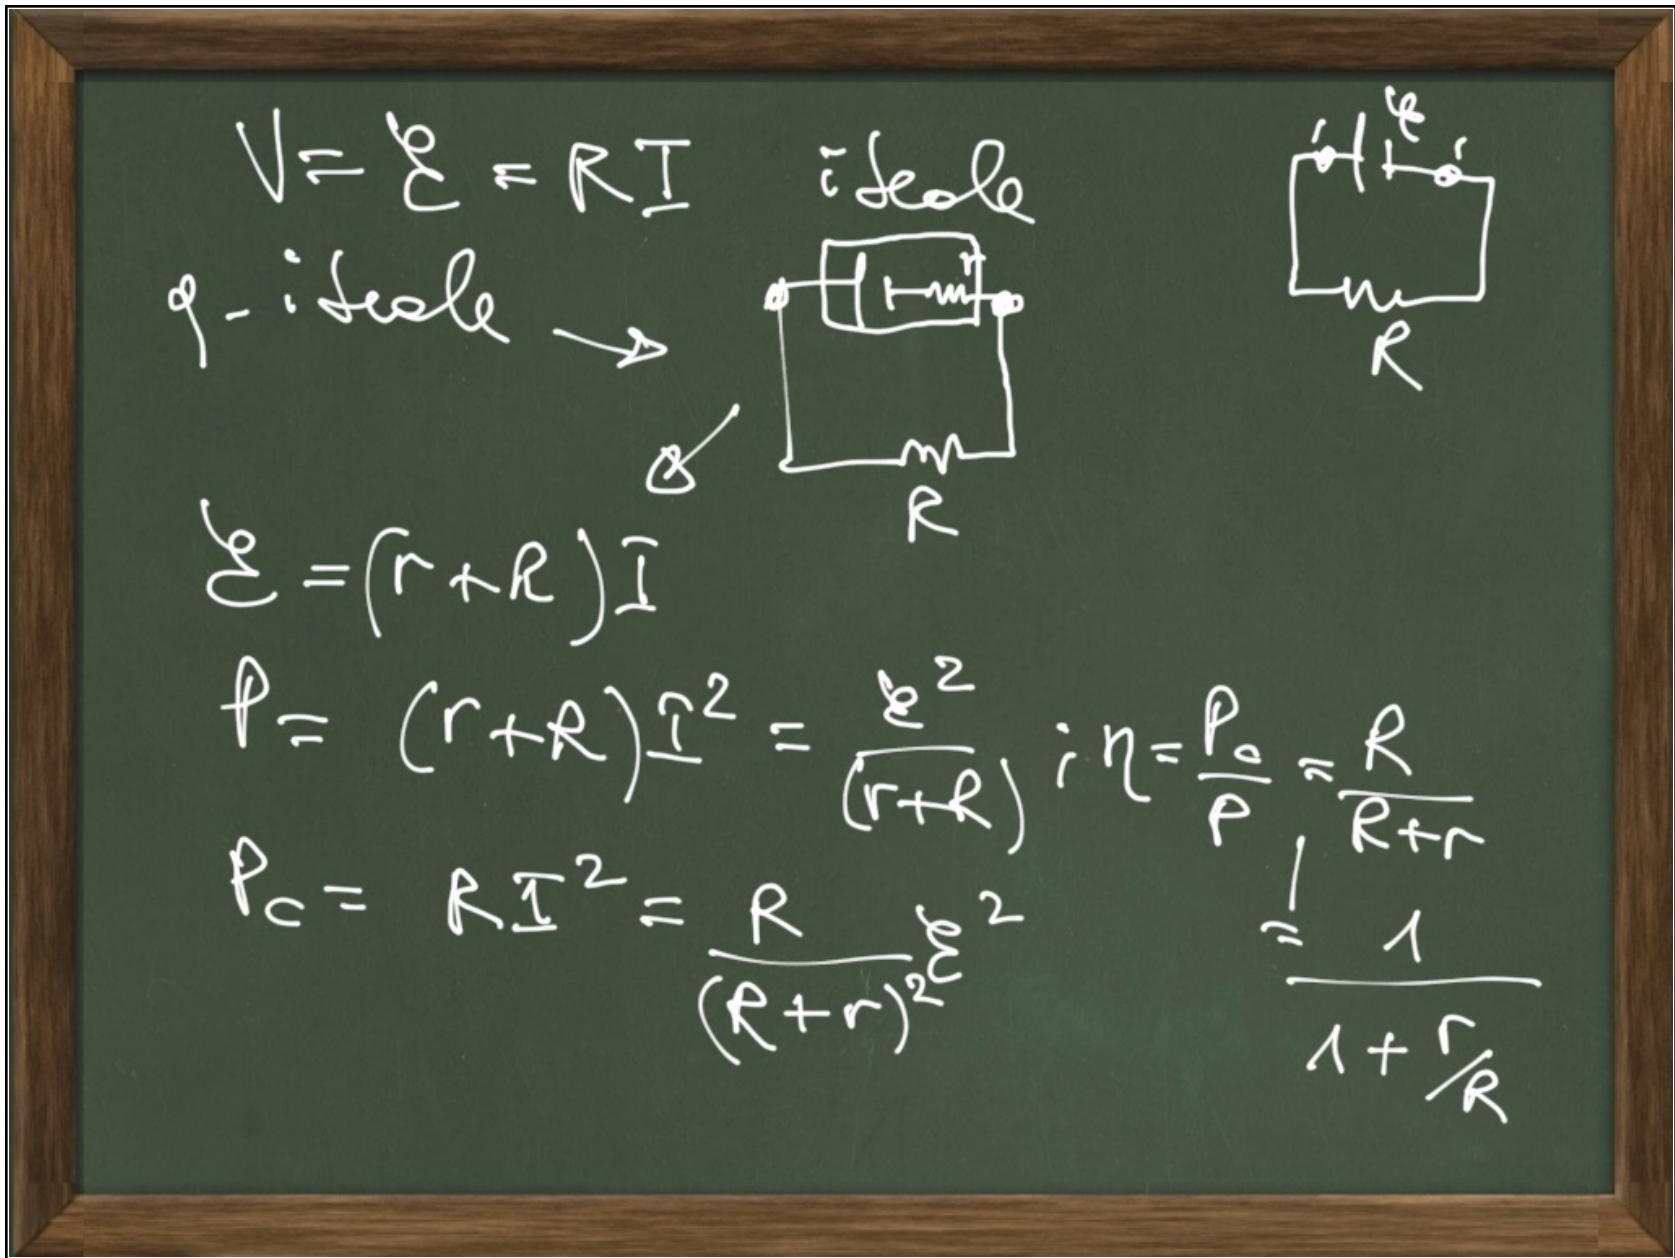 V = ℰ = RI ideale
ℰ
R
q-ideale →
r
R
ℰ = (r+R)I
P = (r+R)I² = ℰ²/(r+R) ; η = Pc/P = R/(R+r)
= 1/(1+r/R)
Pc = RI² = R/(R+r)² ℰ²